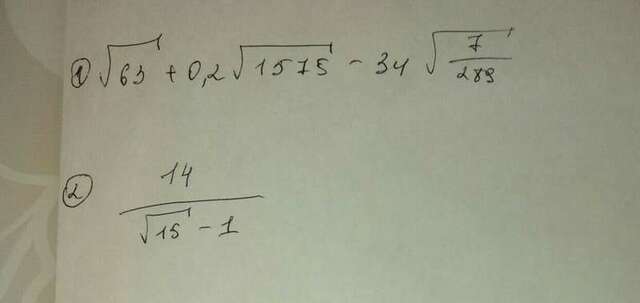 ① √63 + 0,2 √1575 - 34 √(7/289)
② 14/(√15 - 1)